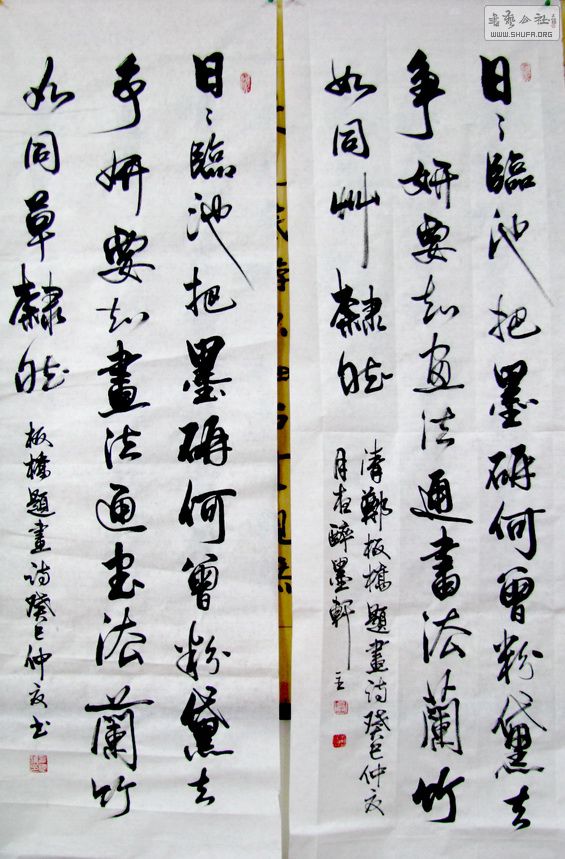 書藝公社
WWW.SHUFA.ORG
日〻臨池把墨研何曾粉黛去
争妍要知画法通書法蘭竹
如同艸隸然
清鄭板橋題畫詩癸巳仲夏
月右醉墨軒主
日〻臨池把墨研何曾粉黛去
争妍要知畫法通书法蘭竹
如同草隸然
板橋題畫詩癸巳仲夏书